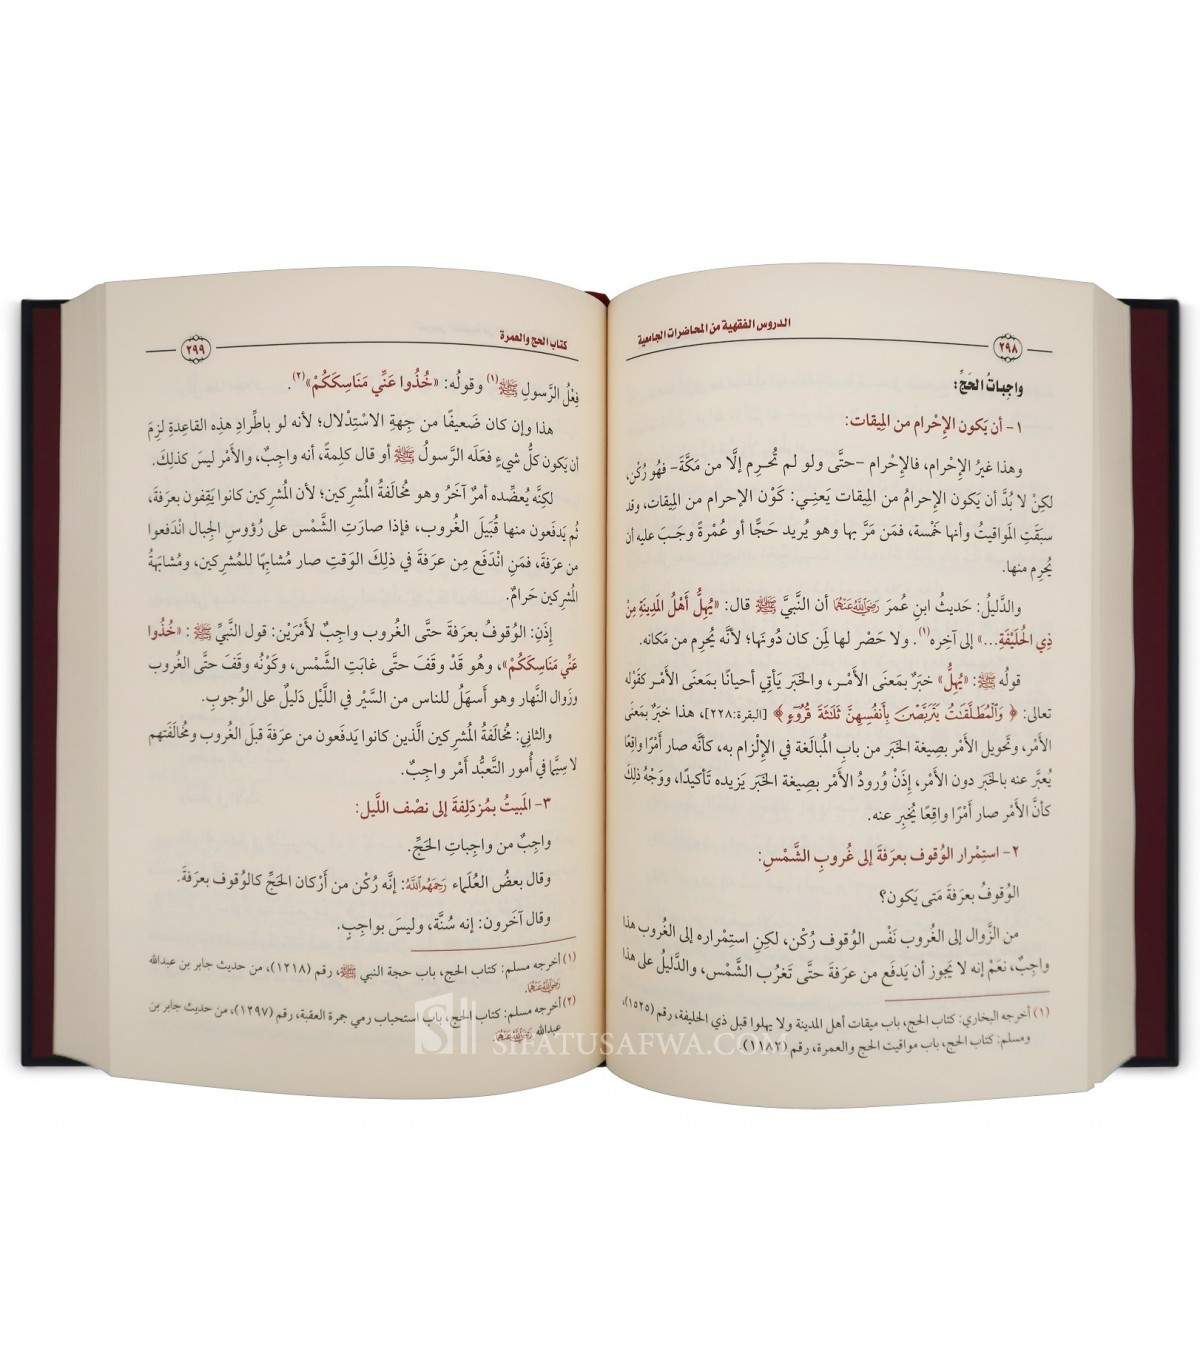 الدروس الفقهية من المحاضرات الجامعية
٢٩٨
واجِباتُ الحَجِّ:
١- أن يَكون الإِحْرام من المِيقات:
وهذا غيرُ الإِحْرام، فالإِحْرام -حتَّى ولو لم تُحرِم إلَّا من مَكَّةَ- فهُو رُكْن،
لكِنْ لا بُدَّ أن يَكون الإِحرامُ من المِيقات يَعنِي: كَوْن الإحرام من المِيقات، وقد
سبَقَتِ المَواقيتُ وأنها خَمْسة، فمَن مَرَّ بها وهو يُريد حَجًّا أو عُمْرةً وجَبَ عليه أن
يُحرِم منها.
والدَّليلُ: حَديثُ ابنِ عُمرَ رَضِيَ اللَّهُ عَنْهُمَا أن النَّبيَّ ﷺ قال: «يُهِلُّ أَهْلُ المَدِينَةِ مِنْ
ذِي الحُلَيْفَةِ...» إلى آخِرِه(١). ولا حَصْر لها لِمَن كان دُونَها؛ لأنَّه يُحرِم من مَكانه.
قولُه ﷺ: «يُهِلُّ» خبَرٌ بمَعنَى الأَمْر، والخَبَر يَأتِي أحيانًا بمَعنَى الأَمْر كقَوْله
تعالى: ﴿ وَٱلْمُطَلَّقَٰتُ يَتَرَبَّصْنَ بِأَنفُسِهِنَّ ثَلَٰثَةَ قُرُوٓءٍ ﴾ [البقرة:٢٢٨]، هذا خبَرٌ بمَعنَى
الأَمْر، وتَحويل الأَمْر بصِيغة الخَبَر من بابِ المُبالَغة في الإِلْزام به، كأنَّه صار أَمْرًا واقِعًا
يُعبَّر عنه بالخَبَر دون الأَمْر، إِذَنْ وُرودُ الأَمْر بصِيغة الخَبَر يَزيده تَأكيدًا، ووَجْهُ ذلِكَ
كأنَّ الأَمْر صار أَمْرًا واقِعًا يُخبِر عنه.
٢- استِمْرار الوُقوف بعَرفةَ إلى غُروبِ الشَّمْسِ:
الوُقوفُ بعَرفةَ مَتى يَكون؟
من الزَّوال إلى الغُروب نَفْس الوُقوف رُكْن، لكِنِ استِمْراره إلى الغُروب هذا
واجِبٌ، نعَمْ إنه لا يَجوز أن يَدفَع من عرَفةَ حتَّى تَغرُب الشَّمْس، والدَّليلُ على هذا
(١) أخرجه البخاري: كتاب الحج، باب ميقات أهل المدينة ولا يهلوا قبل ذي الحليفة، رقم (١٥٢٥)،
ومسلم: كتاب الحج، باب مواقيت الحج والعمرة، رقم (١١٨٢).
كتاب الحج والعمرة
٢٩٩
فِعْلُ الرَّسولِ ﷺ(١) وقولُه: «خُذُوا عَنِّي مَنَاسِكَكُمْ»(٢).
هذا وإن كان ضَعيفًا من جِهةِ الاسْتِدْلال؛ لأنه لو باطِّرادِ هذِه القاعِدةِ لزِمَ
أن يَكون كلُّ شيءٍ فعَلَه الرَّسولُ ﷺ أو قال كلِمةً، أنه واجِبٌ، والأَمْر ليسَ كذلِكَ.
لكِنَّه يُعضِّده أمرٌ آخَرُ وهو مُخالَفةُ المُشرِكين؛ لأن المُشرِكين كانوا يَقِفون بعَرفةَ،
ثُم يَدفَعون منها قُبيَل الغُروب، فإذا صارَتِ الشَّمْس على رُؤوسِ الجِبال انْدَفَعوا
من عرَفةَ، فمَنِ انْدَفَع مِن عرَفةَ في ذلِكَ الوَقتِ صار مُشابِهًا للمُشرِكين، ومُشابَهةُ
المُشرِكين حَرامٌ.
إِذَنِ: الوُقوفُ بعَرفةَ حتَّى الغُروب واجِبٌ لأَمْرَيْن: قول النَّبيِّ ﷺ: «خُذُوا
عَنِّي مَنَاسِكَكُمْ»، وهُو قَدْ وقَفَ حتَّى غابَتِ الشَّمْس، وكَوْنُه وقَفَ حتَّى الغُروب
وزَوال النَّهار وهو أَسهَلُ للناس من السَّيْر في اللَّيْل دَليلٌ على الوُجوبِ.
والثاني: مُخالَفةُ المُشرِكين الَّذين كانوا يَدفَعون من عرَفةَ قبلَ الغُروب ومُخالَفَتهم
لا سِيَّما في أُمور التَّعبُّد أَمْر واجِبٌ.
٣- المَبيتُ بمُزدَلِفةَ إلى نصْف اللَّيل:
واجِبٌ من واجِباتِ الحَجِّ.
وقال بعضُ العُلَماء رَحِمَهُمُ اللَّهُ: إنَّه رُكْن من أَرْكان الحَجِّ كالوُقوف بعَرفةَ.
وقال آخَرون: إنه سُنَّة، وليسَ بواجِبٍ.
(١) أخرجه مسلم: كتاب الحج، باب حجة النبي ﷺ، رقم (١٢١٨)، من حديث جابر بن عبدالله
رَضِيَ اللَّهُ عَنْهُمَا.
(٢) أخرجه مسلم: كتاب الحج، باب استحباب رمي جمرة العقبة، رقم (١٢٩٧)، من حديث جابر بن
عبدالله رَضِيَ اللَّهُ عَنْهُمَا.
SIFATUSAFWA.COM